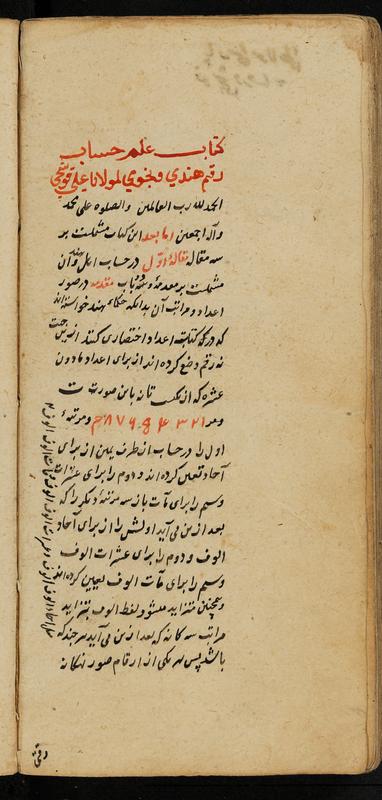 كتاب علم حساب
رقم هندی و نجومی لمولانا علی قوشجی
الحمد لله رب العالمین والصلوه علی محمد
وآله اجمعین اما بعد این کتاب مشتملست بر
سه مقاله مقالهٔ اول در حساب اهل هند و آن
مشتملست بر مقدمه و سه باب مقدمه در صور
اعداد و مراتب آن بدانکه حکمای هند خواسته‌اند
که در کتابت اعداد اختصاری کنند از این جهت
نه رقم وضع کرده‌اند از برای اعداد مادون
عشره که از یکست تا نه باین صورت
۱ ۲ ۳ ۴ ۵ ۶ ۷ ۸ ۹ و مرتبهٔ
اول را در حساب از طرف یمین از برای
آحاد تعیین کرده‌اند و دوم را برای عشرات
و سیم را برای مآت باز سه مرتبهٔ دیگر را که
بعد ازین می‌آید اولش را از برای آحاد
الوف و دوم را برای عشرات الوف
و سیم را برای مآت الوف تعیین کرده‌اند
و همچنین متزاید میشود لفظ الوف بتزاید
مراتب سه کانه که بعد ازین می‌آید هر چند که
باشد پس هر یکی از ارقام صور نه‌کانه